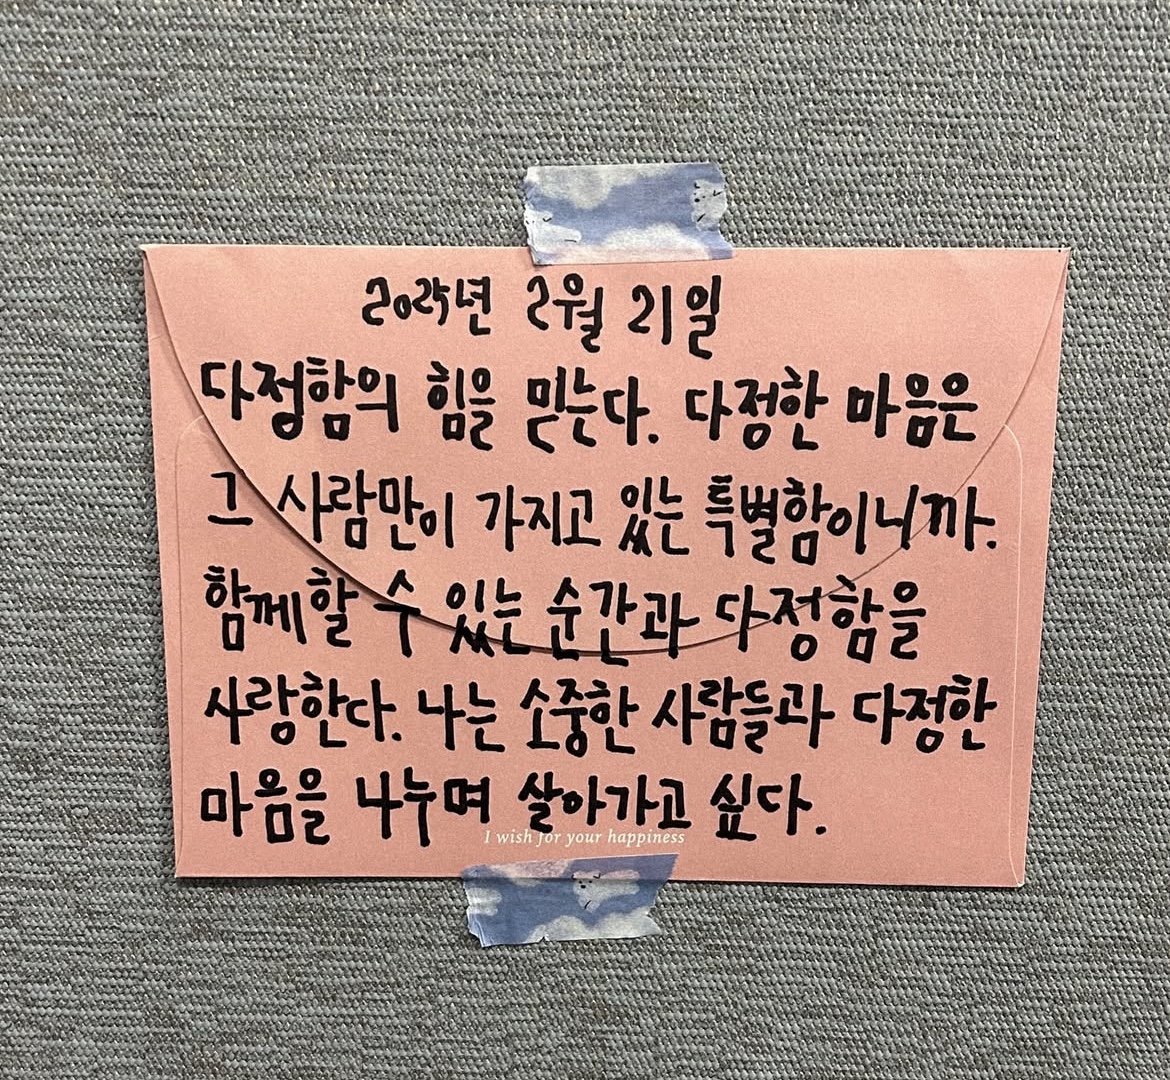 2025년 2월 21일
다정함의 힘을 믿는다. 다정한 마음은
그 사람만이 가지고 있는 특별함이니까.
함께할 수 있는 순간과 다정함을
사랑한다. 나는 소중한 사람들과 다정한
마음을 나누며 살아가고 싶다.
I wish for your happiness